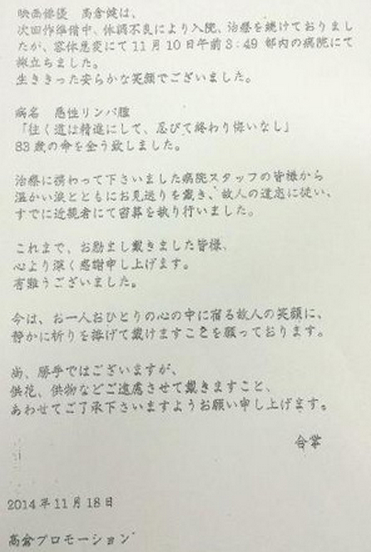 映画俳優　高倉健は、
次回作準備中、体調不良により入院、治療を続けておりまし
たが、容体急変にて11月10日午前3:49 都内の病院にて
旅立ちました。
生ききった安らかな笑顔でございました。
病名　悪性リンパ腫
「往く道は精進にして、忍びて終わり悔いなし」
83歳の命を全う致しました。
治療に携わって下さいました病院スタッフの皆様から
温かい涙とともにお見送りを戴き、故人の遺志に従い、
すでに近親者にて密葬を執り行いました。
これまで、お励まし戴きました皆様、
心より深く感謝申し上げます。
有難うございました。
今は、お一人おひとりの心の中に宿る故人の笑顔に、
静かに祈りを捧げて戴けますことを願っております。
尚、勝手ではございますが、
供花、供物などご遠慮させて戴きますこと、
あわせてご了承下さいますようお願い申し上げます。
合掌
2014年11月18日
高倉プロモーション